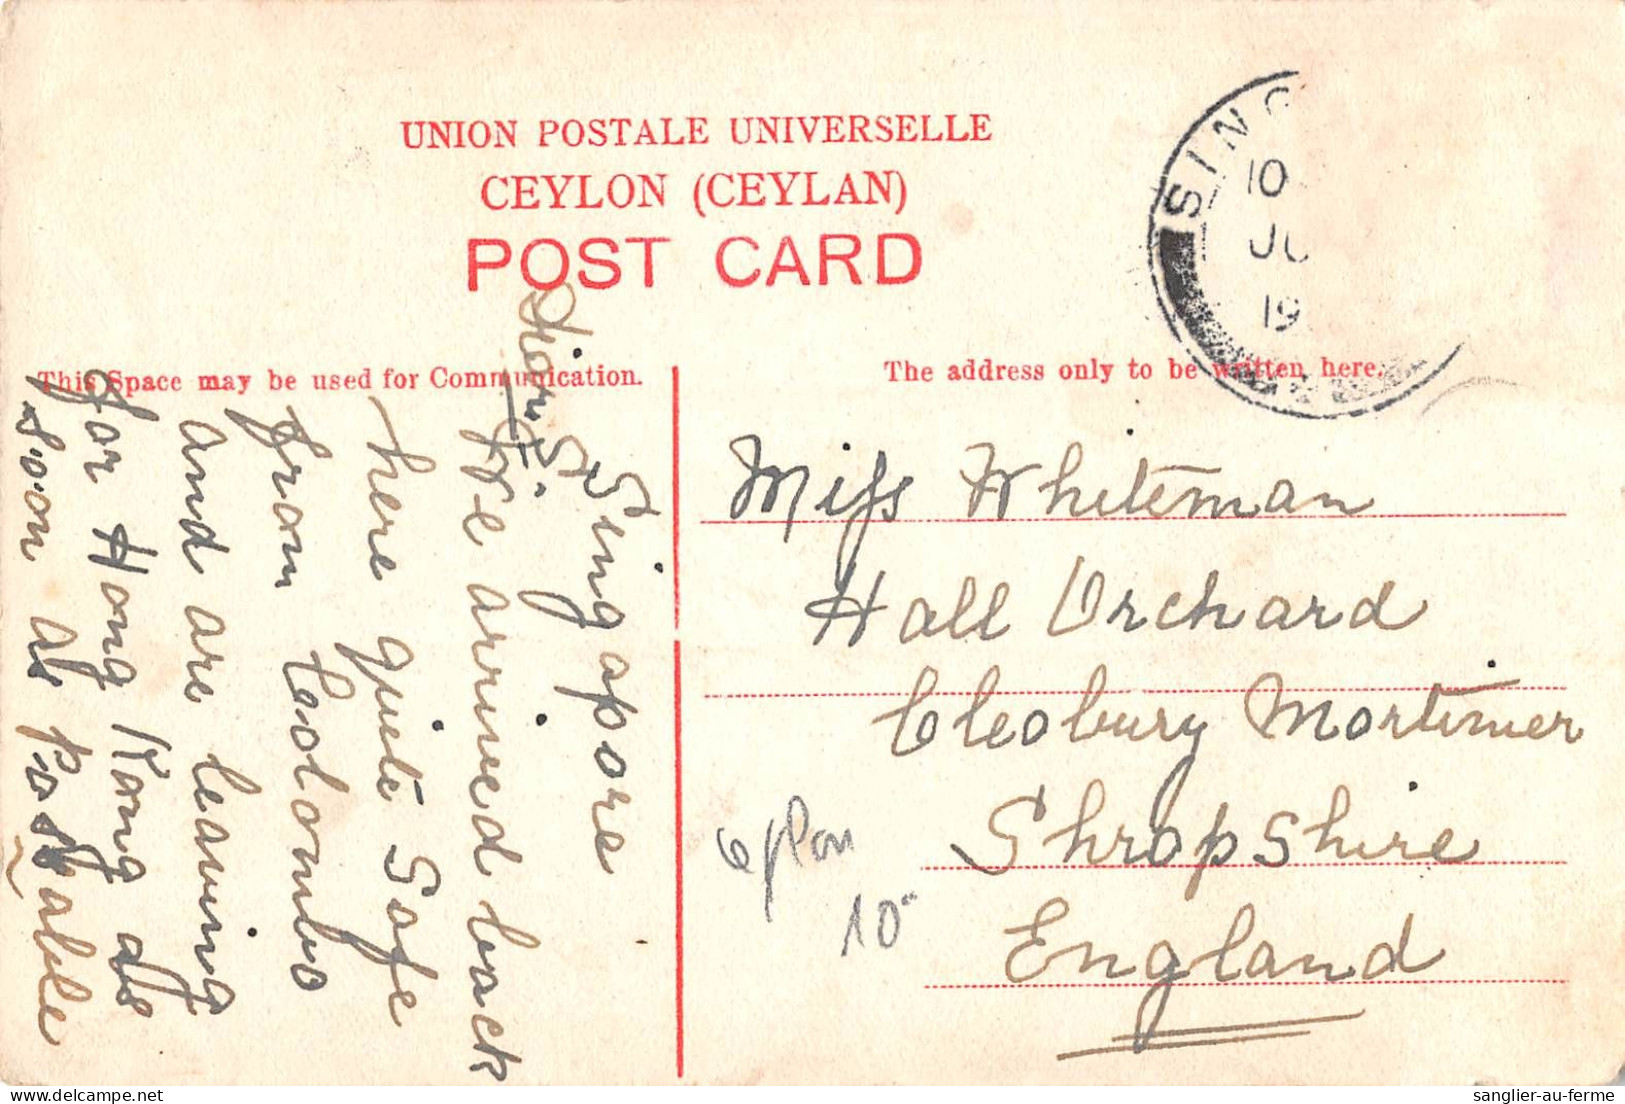 UNION POSTALE UNIVERSELLE
CEYLON (CEYLAN)
POST CARD
SING
10
JU
19
This Space may be used for Communication.
The address only to be written here.
Singapore
We arrived back
here quite Safe
from Colombo
and are leaving
for Hong Kong as
soon as Possable
Miss Whiteman
Hall Orchard
Cleobury Mortimer
Shropshire
England
10
sanglier-au-ferme